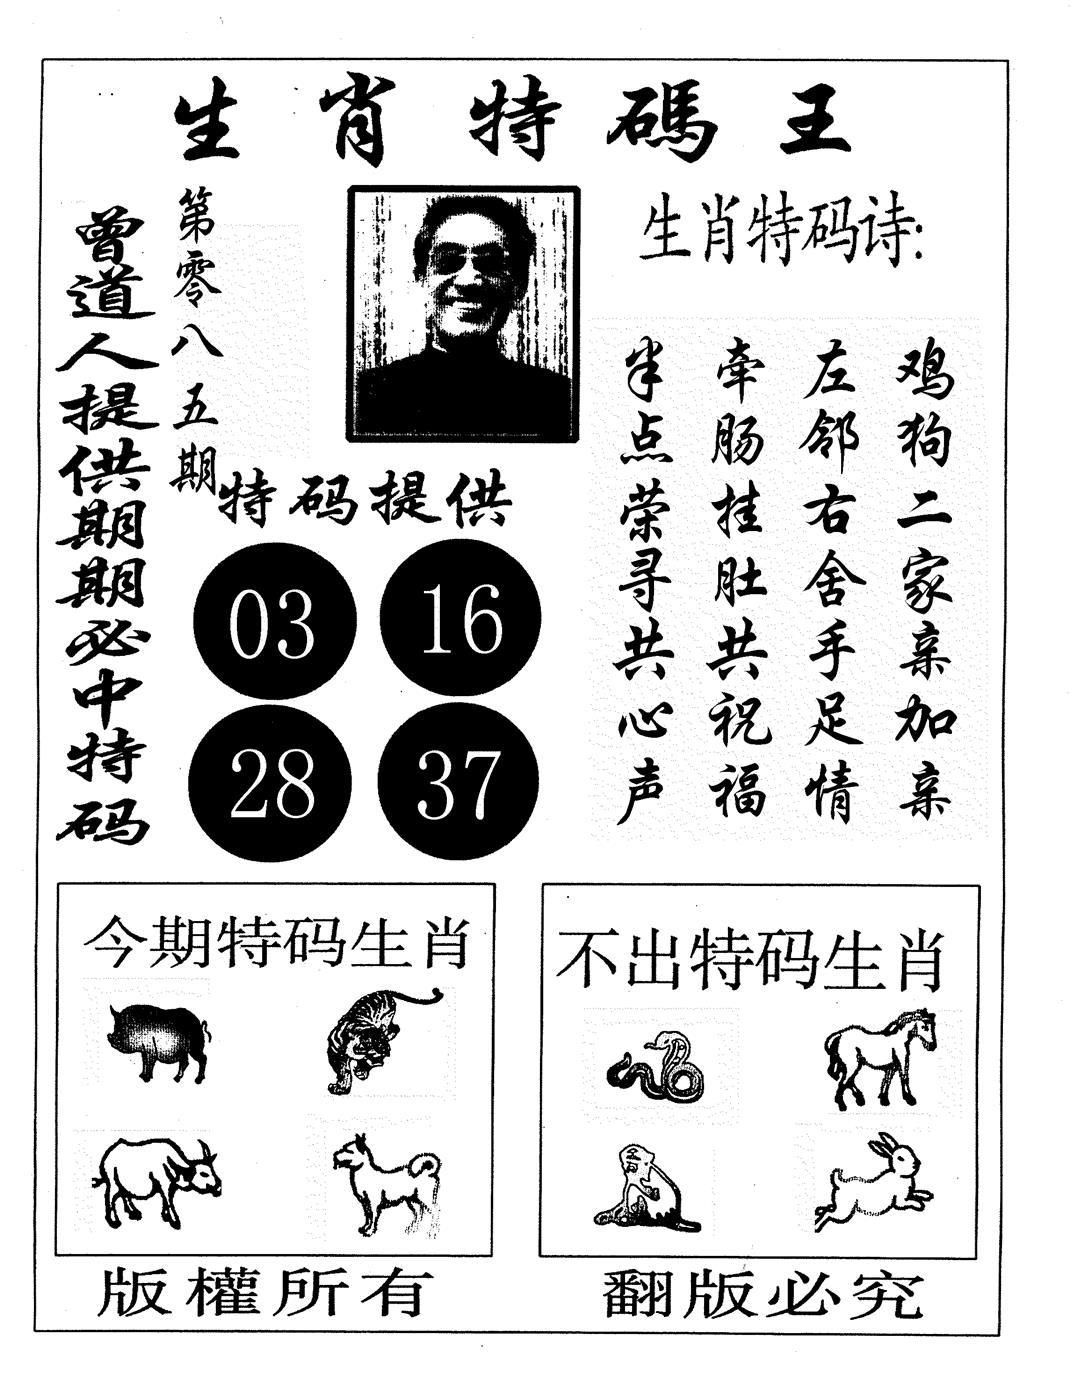 生肖特碼王
曾道人提供期期必中特码
第零八五期
生肖特码诗:
鸡狗二家亲加亲
左邻右舍手足情
牵肠挂肚共祝福
半点荣寻共心声
特码提供
03 16
28 37
今期特码生肖
不出特码生肖
版權所有
翻版必究